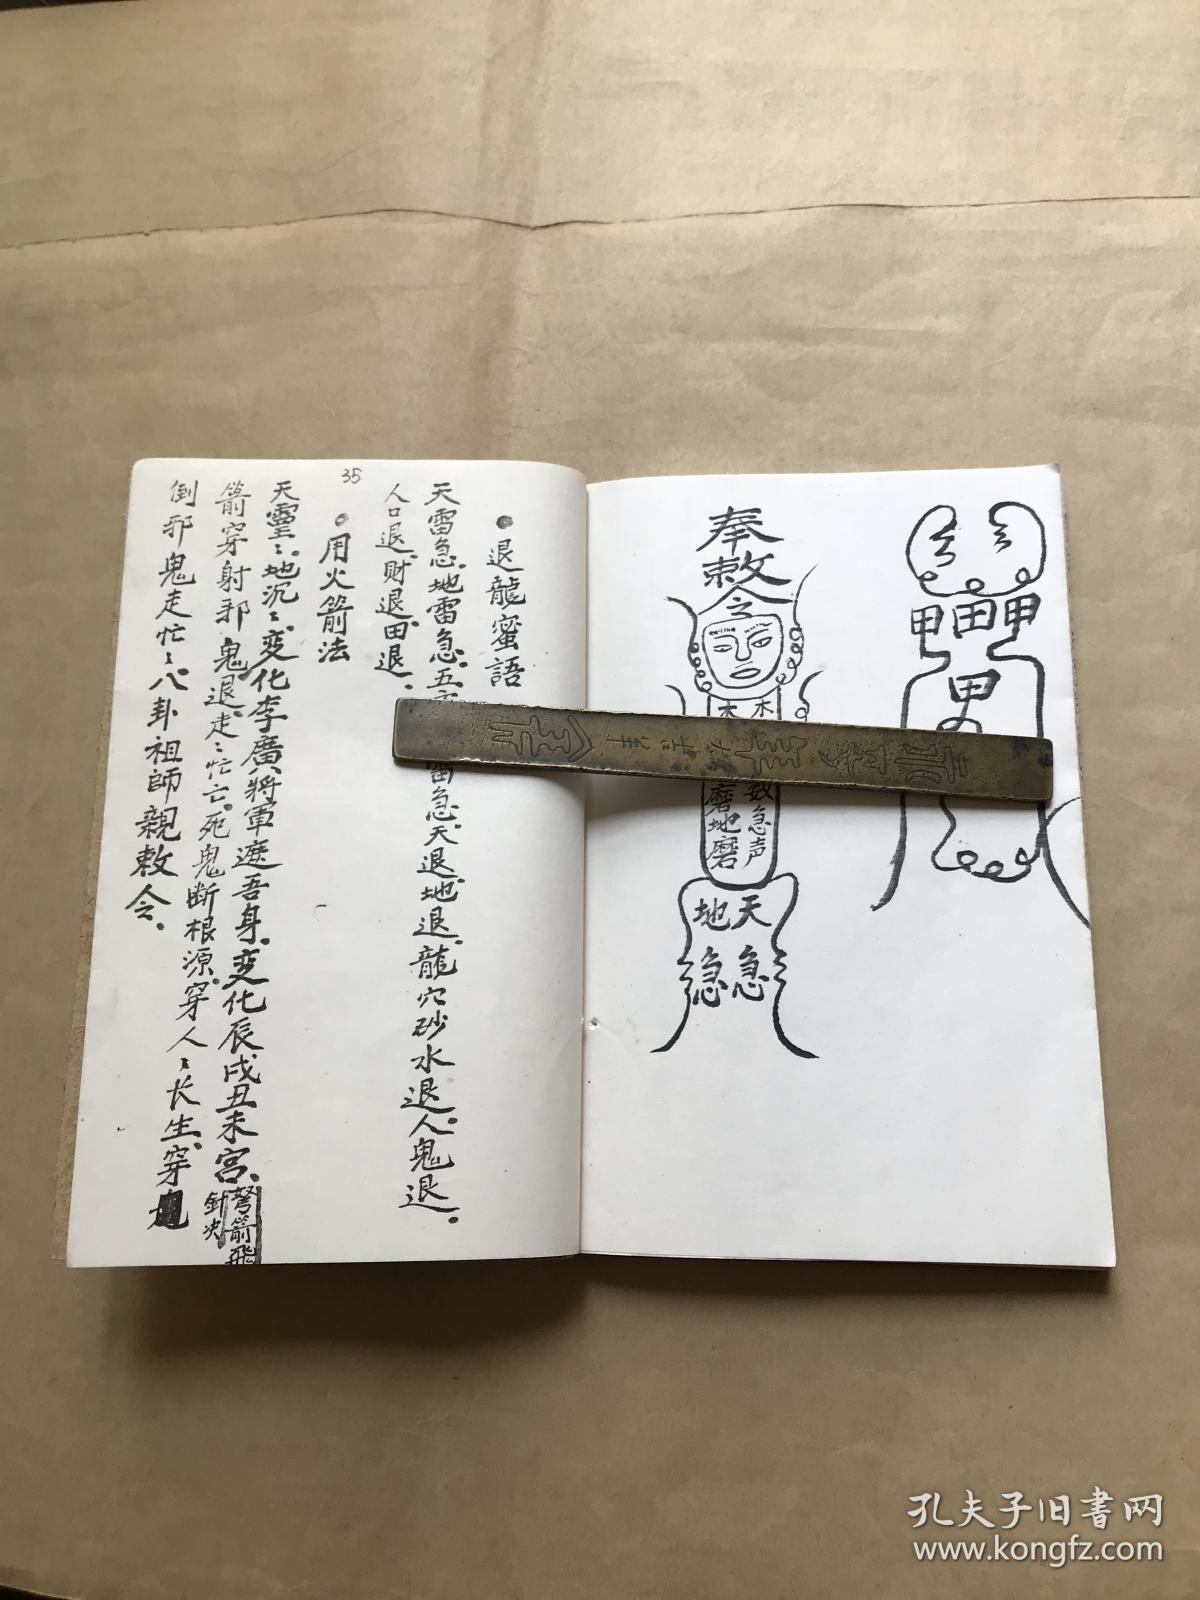 奉敕令
木
木
敖急声
磨地磨
天急
地急
甲田甲
甲
35
退龍蜜語
天雷急.地雷急.五
雷急.天退.地退.龍穴砂水退.人鬼退.
人口退.财退.田退.
用火箭法
天靈〻地沉〻变化李廣將軍遮吾身.变化辰戌丑未宫.弩箭飛
針决
箭穿射邪鬼退走〻忙亡.死鬼断根源.穿人〻长生.穿
倒邪鬼走忙〻八卦祖師親敕令.
孔夫子旧书网
www.kongfz.com